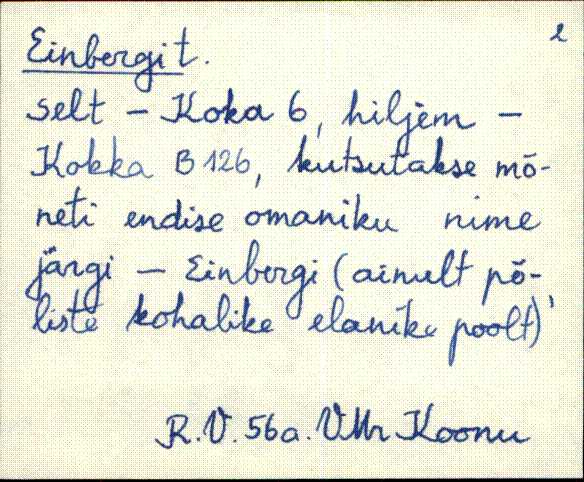 2
Einbergit.
selt – Koka 6, hiljem –
Kokka B 126, kutsutakse mõ-
neti endise omaniku nime
järgi – Einbergi (ainult põ-
liste kohalike elanike poolt)
R.V. 56a. VMr Koonu